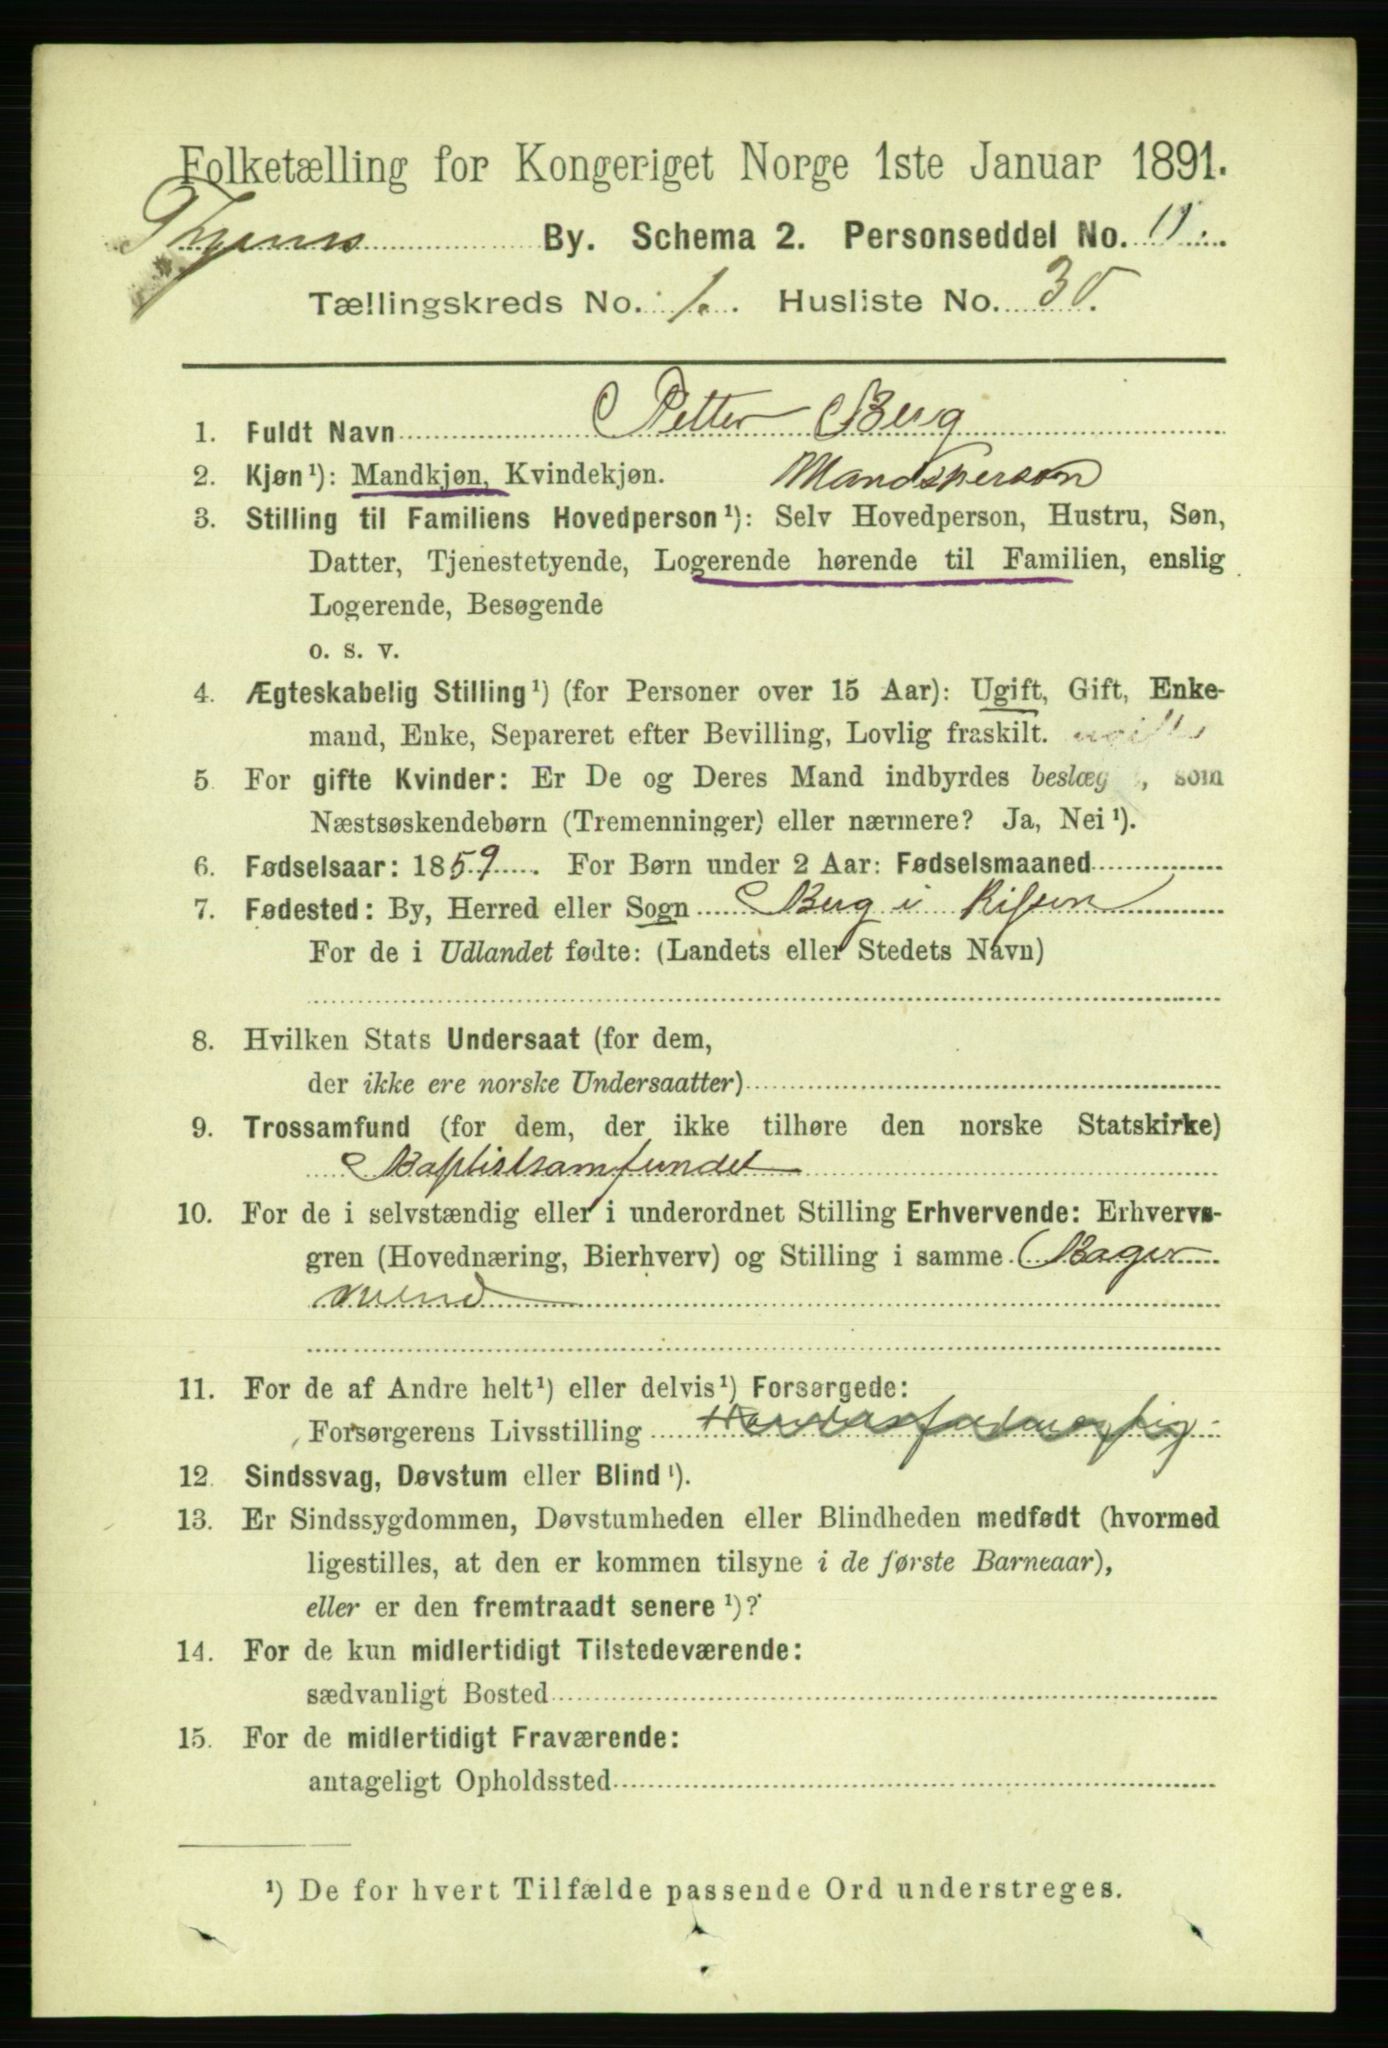 Folketælling for Kongeriget Norge 1ste Januar 1891.
By. Schema 2. Personseddel No. 11.
Tællingskreds No. 1. Husliste No. 30.
1. Fuldt Navn Petter Berg
2. Kjøn¹): Mandkjøn, Kvindekjøn. Mandsperson
3. Stilling til Familiens Hovedperson¹): Selv Hovedperson, Hustru, Søn,
Datter, Tjenestetyende, Logerende hørende til Familien, enslig
Logerende, Besøgende
o. s. v.
4. Ægteskabelig Stilling¹) (for Personer over 15 Aar): Ugift, Gift, Enke-
mand, Enke, Separeret efter Bevilling, Lovlig fraskilt. ugift
5. For gifte Kvinder: Er De og Deres Mand indbyrdes beslæg , som
Næstsøskendebørn (Tremenninger) eller nærmere? Ja, Nei¹).
6. Fødselsaar: 1859. For Børn under 2 Aar: Fødselsmaaned
7. Fødested: By, Herred eller Sogn Berg i
For de i Udlandet fødte: (Landets eller Stedets Navn)
8. Hvilken Stats Undersaat (for dem,
der ikke ere norske Undersaatter)
9. Trossamfund (for dem, der ikke tilhøre den norske Statskirke)
Baptistsamfundet
10. For de i selvstændig eller i underordnet Stilling Erhvervende: Erhvervs-
gren (Hovednæring, Bierhverv) og Stilling i samme Bager
svend
11. For de af Andre helt¹) eller delvis¹) Forsørgede:
Forsørgerens Livsstilling
12. Sindssvag, Døvstum eller Blind¹).
13. Er Sindssygdommen, Døvstumheden eller Blindheden medfødt (hvormed
ligestilles, at den er kommen tilsyne i de første Barneaar),
eller er den fremtraadt senere¹)?
14. For de kun midlertidigt Tilstedeværende:
sædvanligt Bosted
15. For de midlertidigt Fraværende:
antageligt Opholdssted
¹) De for hvert Tilfælde passende Ord understreges.